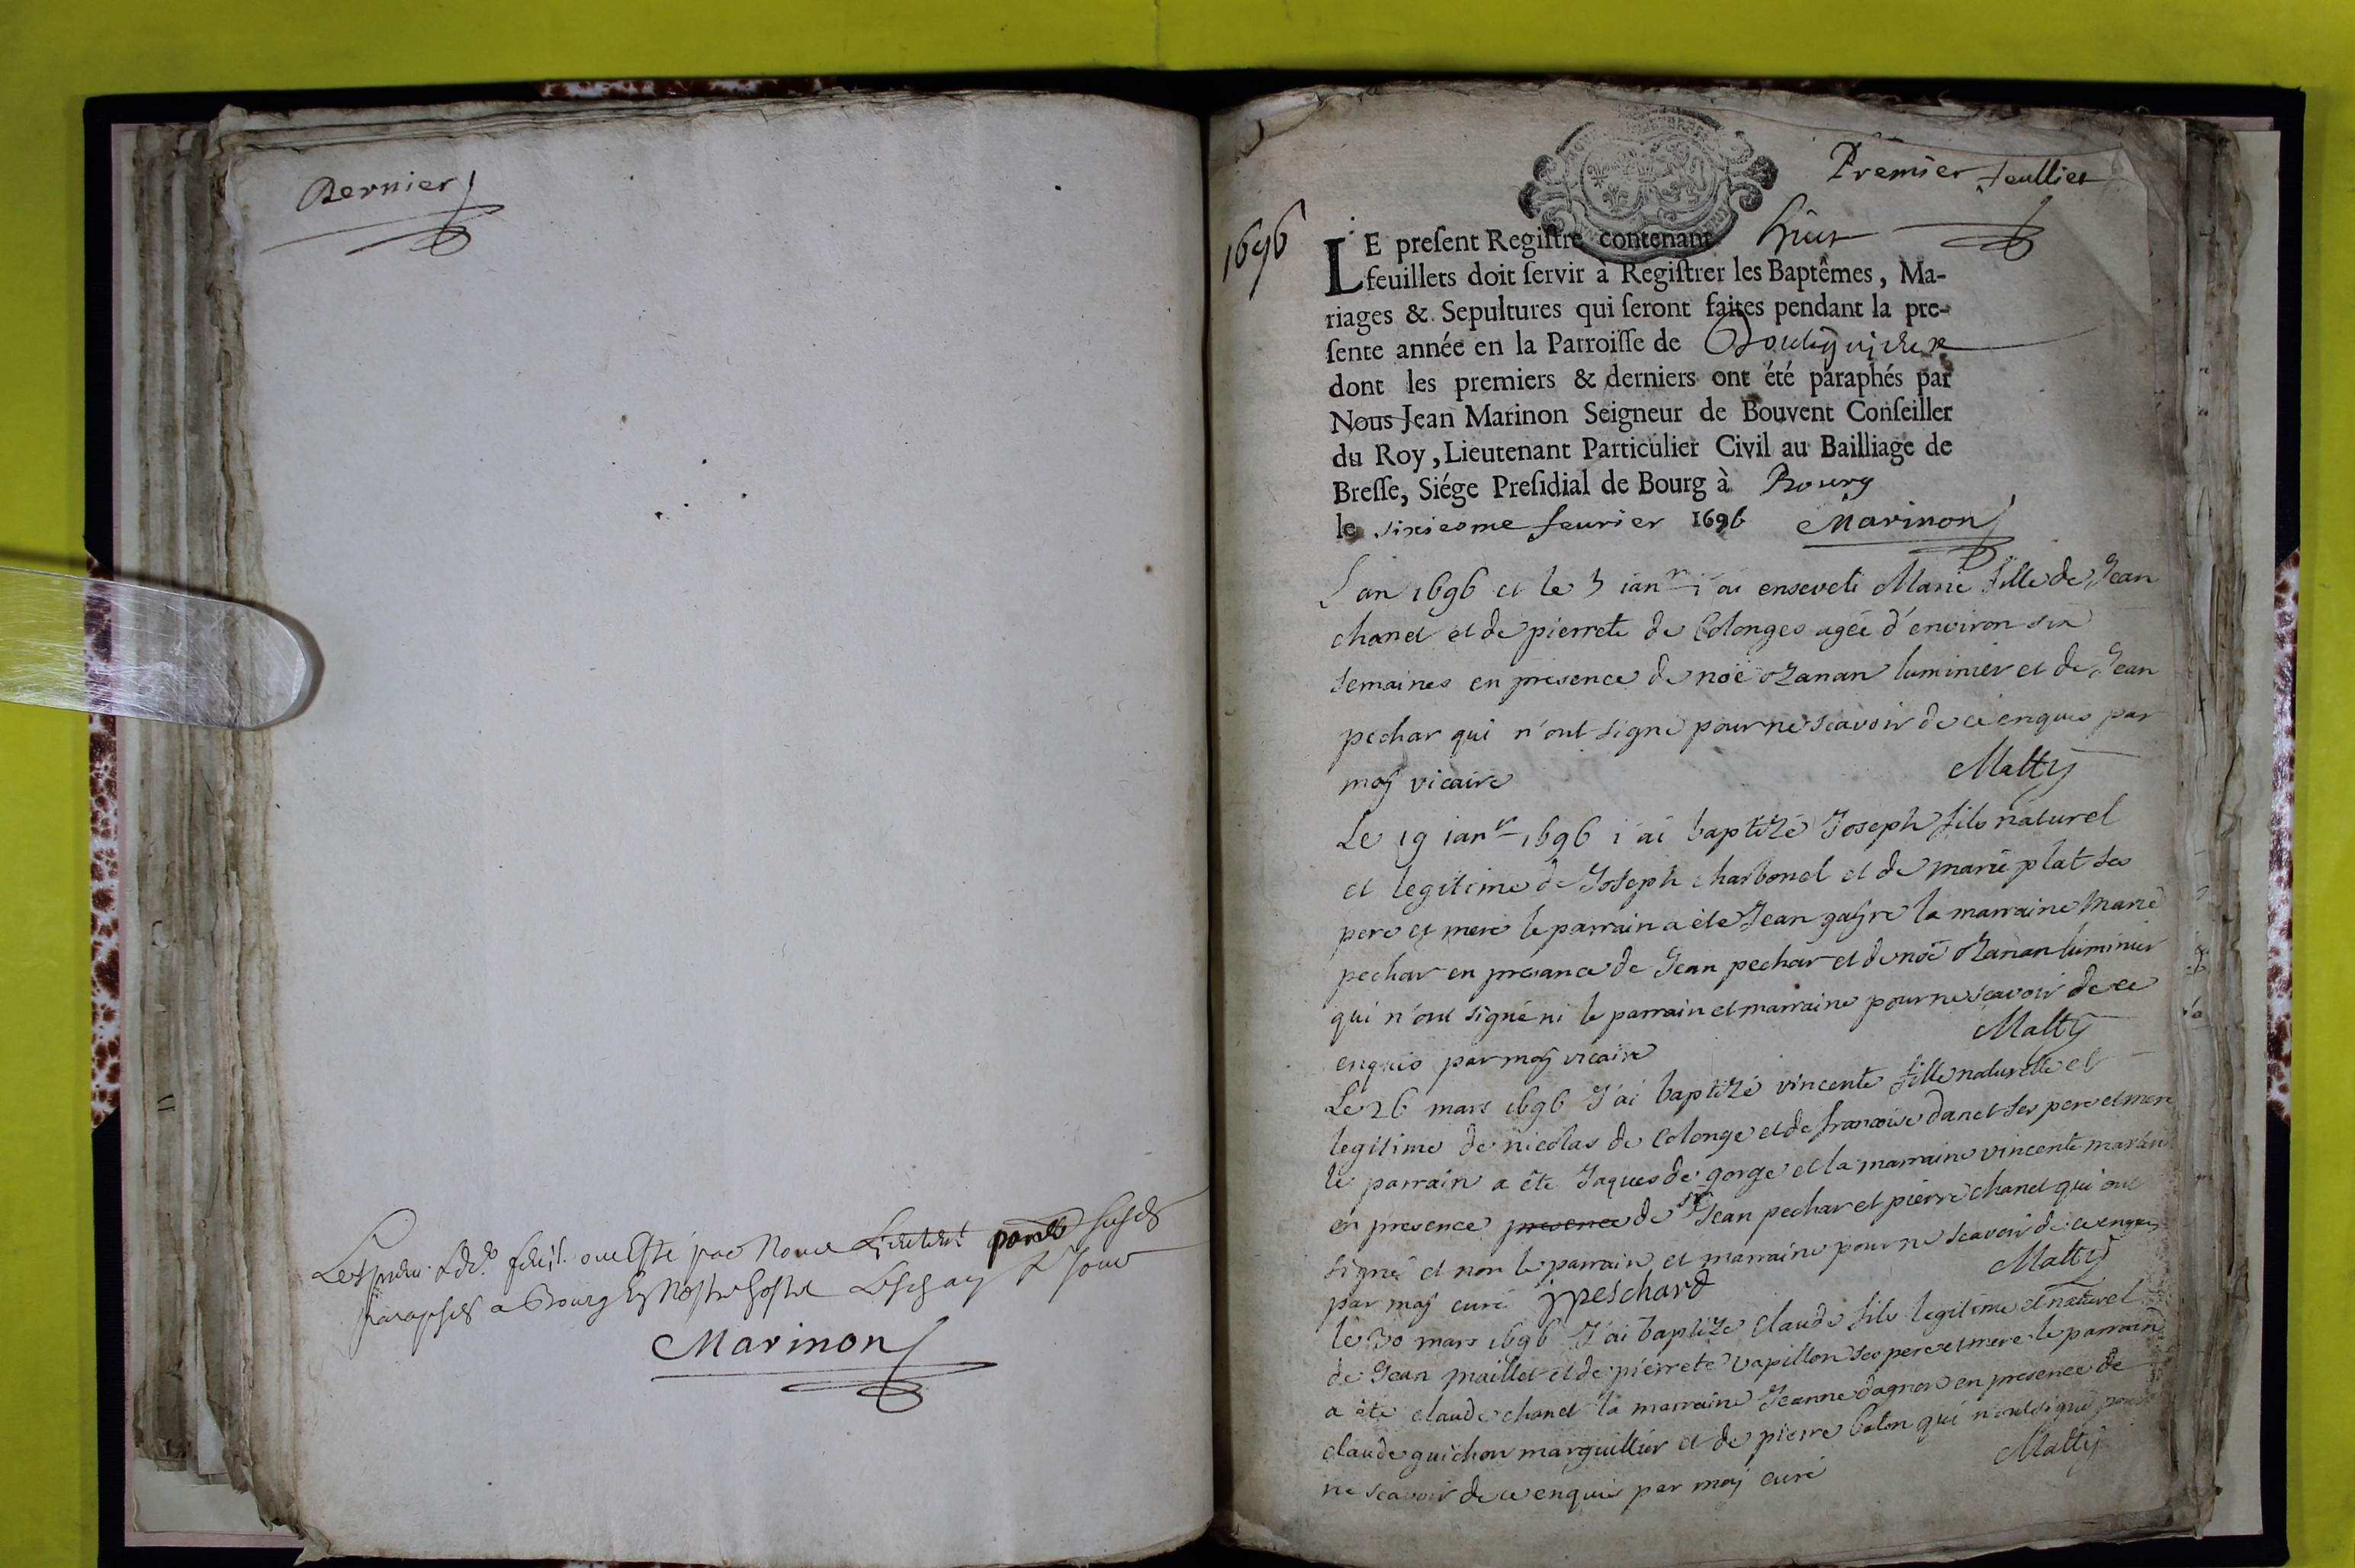 Dernier
Les premier & der. feuil. ont Esté par Nous Lieutent parti susdt
paraphés a Bourg En Nostre hostel Les jour
Marinon
Premier feullier
1696
LE preſent Regiſtre contenant huit
feuillets doit ſervir à Regiſtrer les Baptêmes, Ma-
riages & Sepultures qui ſeront faites pendant la pre-
ſente année en la Parroiſſe de
dont les premiers & derniers ont été paraphés par
Nous Jean Marinon Seigneur de Bouvent Conſeiller
du Roy, Lieutenant Particulier Civil au Bailliage de
Breſſe, Siége Preſidial de Bourg à Bourg
le sixiesme feurier 1696 Marinon
L'an 1696 et le 3 ianr i'ai enseveli Marie fille de Jean
chanel et de pierrete de Colonges agée d'environ six
semaines en presence de noë ozanan luminier et de Jean
pechar qui n'ont signé pour ne scavoir de ce enquis par
moy vicaire Matty
Le 19 ianr 1696 i'ai baptizé Joseph fils naturel
et legitime de Joseph charbonel et de marie plat ses
pere et mere le parrain a ete Jean gayre la marraine marie
pechar en presance de Jean pechar et de noë ozanan luminier
qui n'ont signé ni le parrain et marraine pour ne scavoir de ce
enquis par moy vicaire Matty
Le 26 mars 1696 J'ai baptizé vincente fille naturelle et
legitime de nicolas de Colonge et de francoise danel ses pere et mere
le parrain a ête Jaques de gorge et la marraine vincente marin
en presence presence de sr Jean pechar et pierre chanel qui ont
signé et non le parrain et marraine pour ne scavoir de ce enquis
par moy curé jpeschard Matty
le 30 mars 1696 J'ai baptizé claude fils legitime et naturel
de Jean maillet et de pierrete vapillon ses pere et mere le parrain
a été claude chanel la marraine Jeanne dagnon en presence de
claude guichon marguillier et de pierre baton qui n'ont signé pour
ne scavoir de ce enquis par moy curé Matty